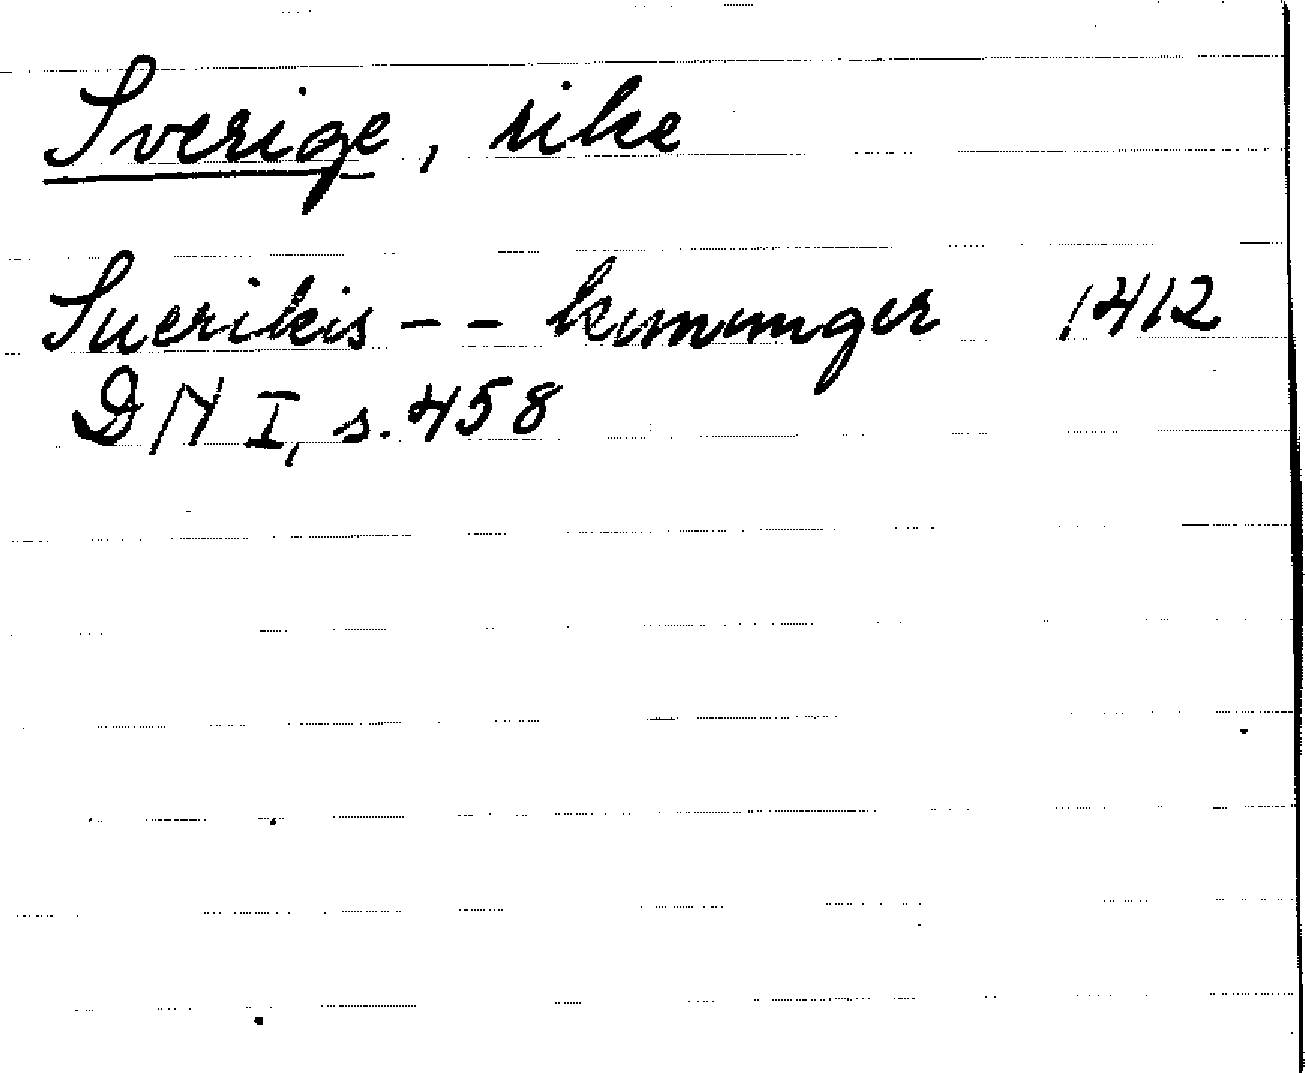 Sverige, rike
Suerikis - - kununger 1412
DN I, s. 458